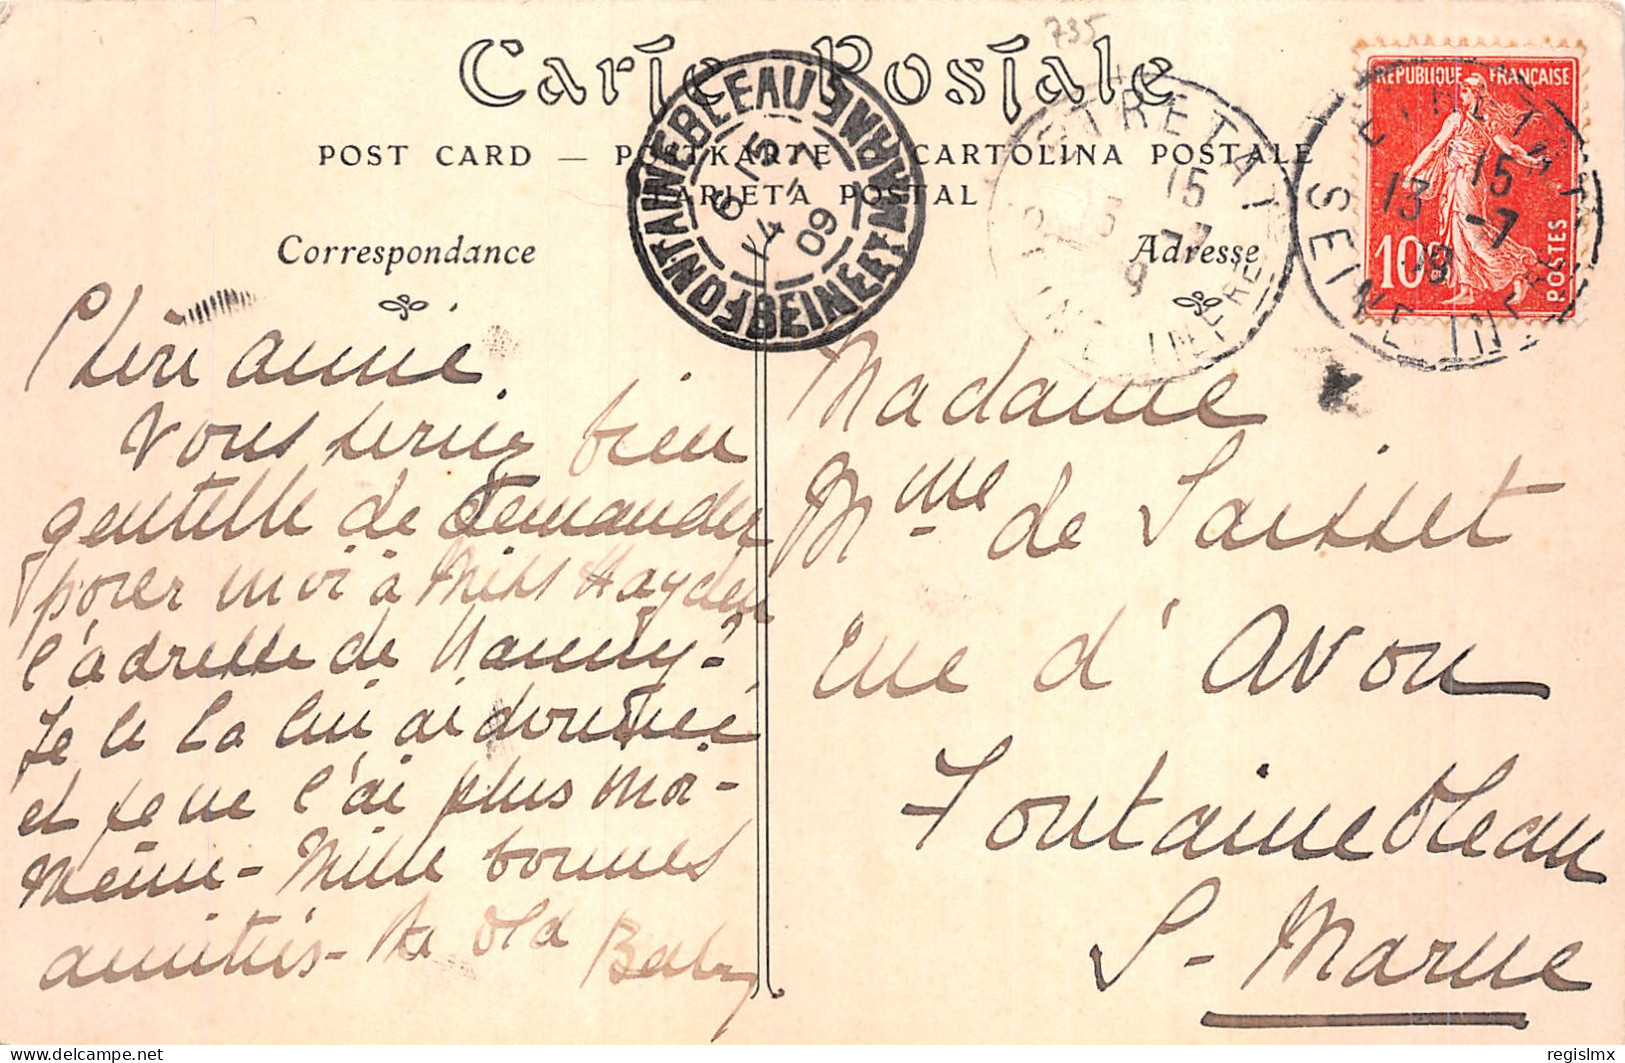 735
Carte Postale
POST CARD — POSTKARTE — CARTOLINA POSTALE
TARJETA POSTAL
Correspondance
Adresse
FONTAINEBLEAU
SEINE ET MARNE
6 15
14 - 7
09
ETRETAT
15
13 - 7
9
SEINE INFRE
REPUBLIQUE FRANÇAISE
10c
POSTES
ETRETAT
15
13 -7
09
SEINE INFRE
Chère amie,
Vous seriez bien
gentille de demander
pour moi à Miss Hayden
l'adresse de Nanny-?
Je le la lui ai donnée
et je ne l'ai plus moi-
même - Mille bonnes
amitiés - The old Baby
Madame
Mme de Saisset
rue d'Avon
Fontainebleau
S- Marne
regislmx
delcampe.net